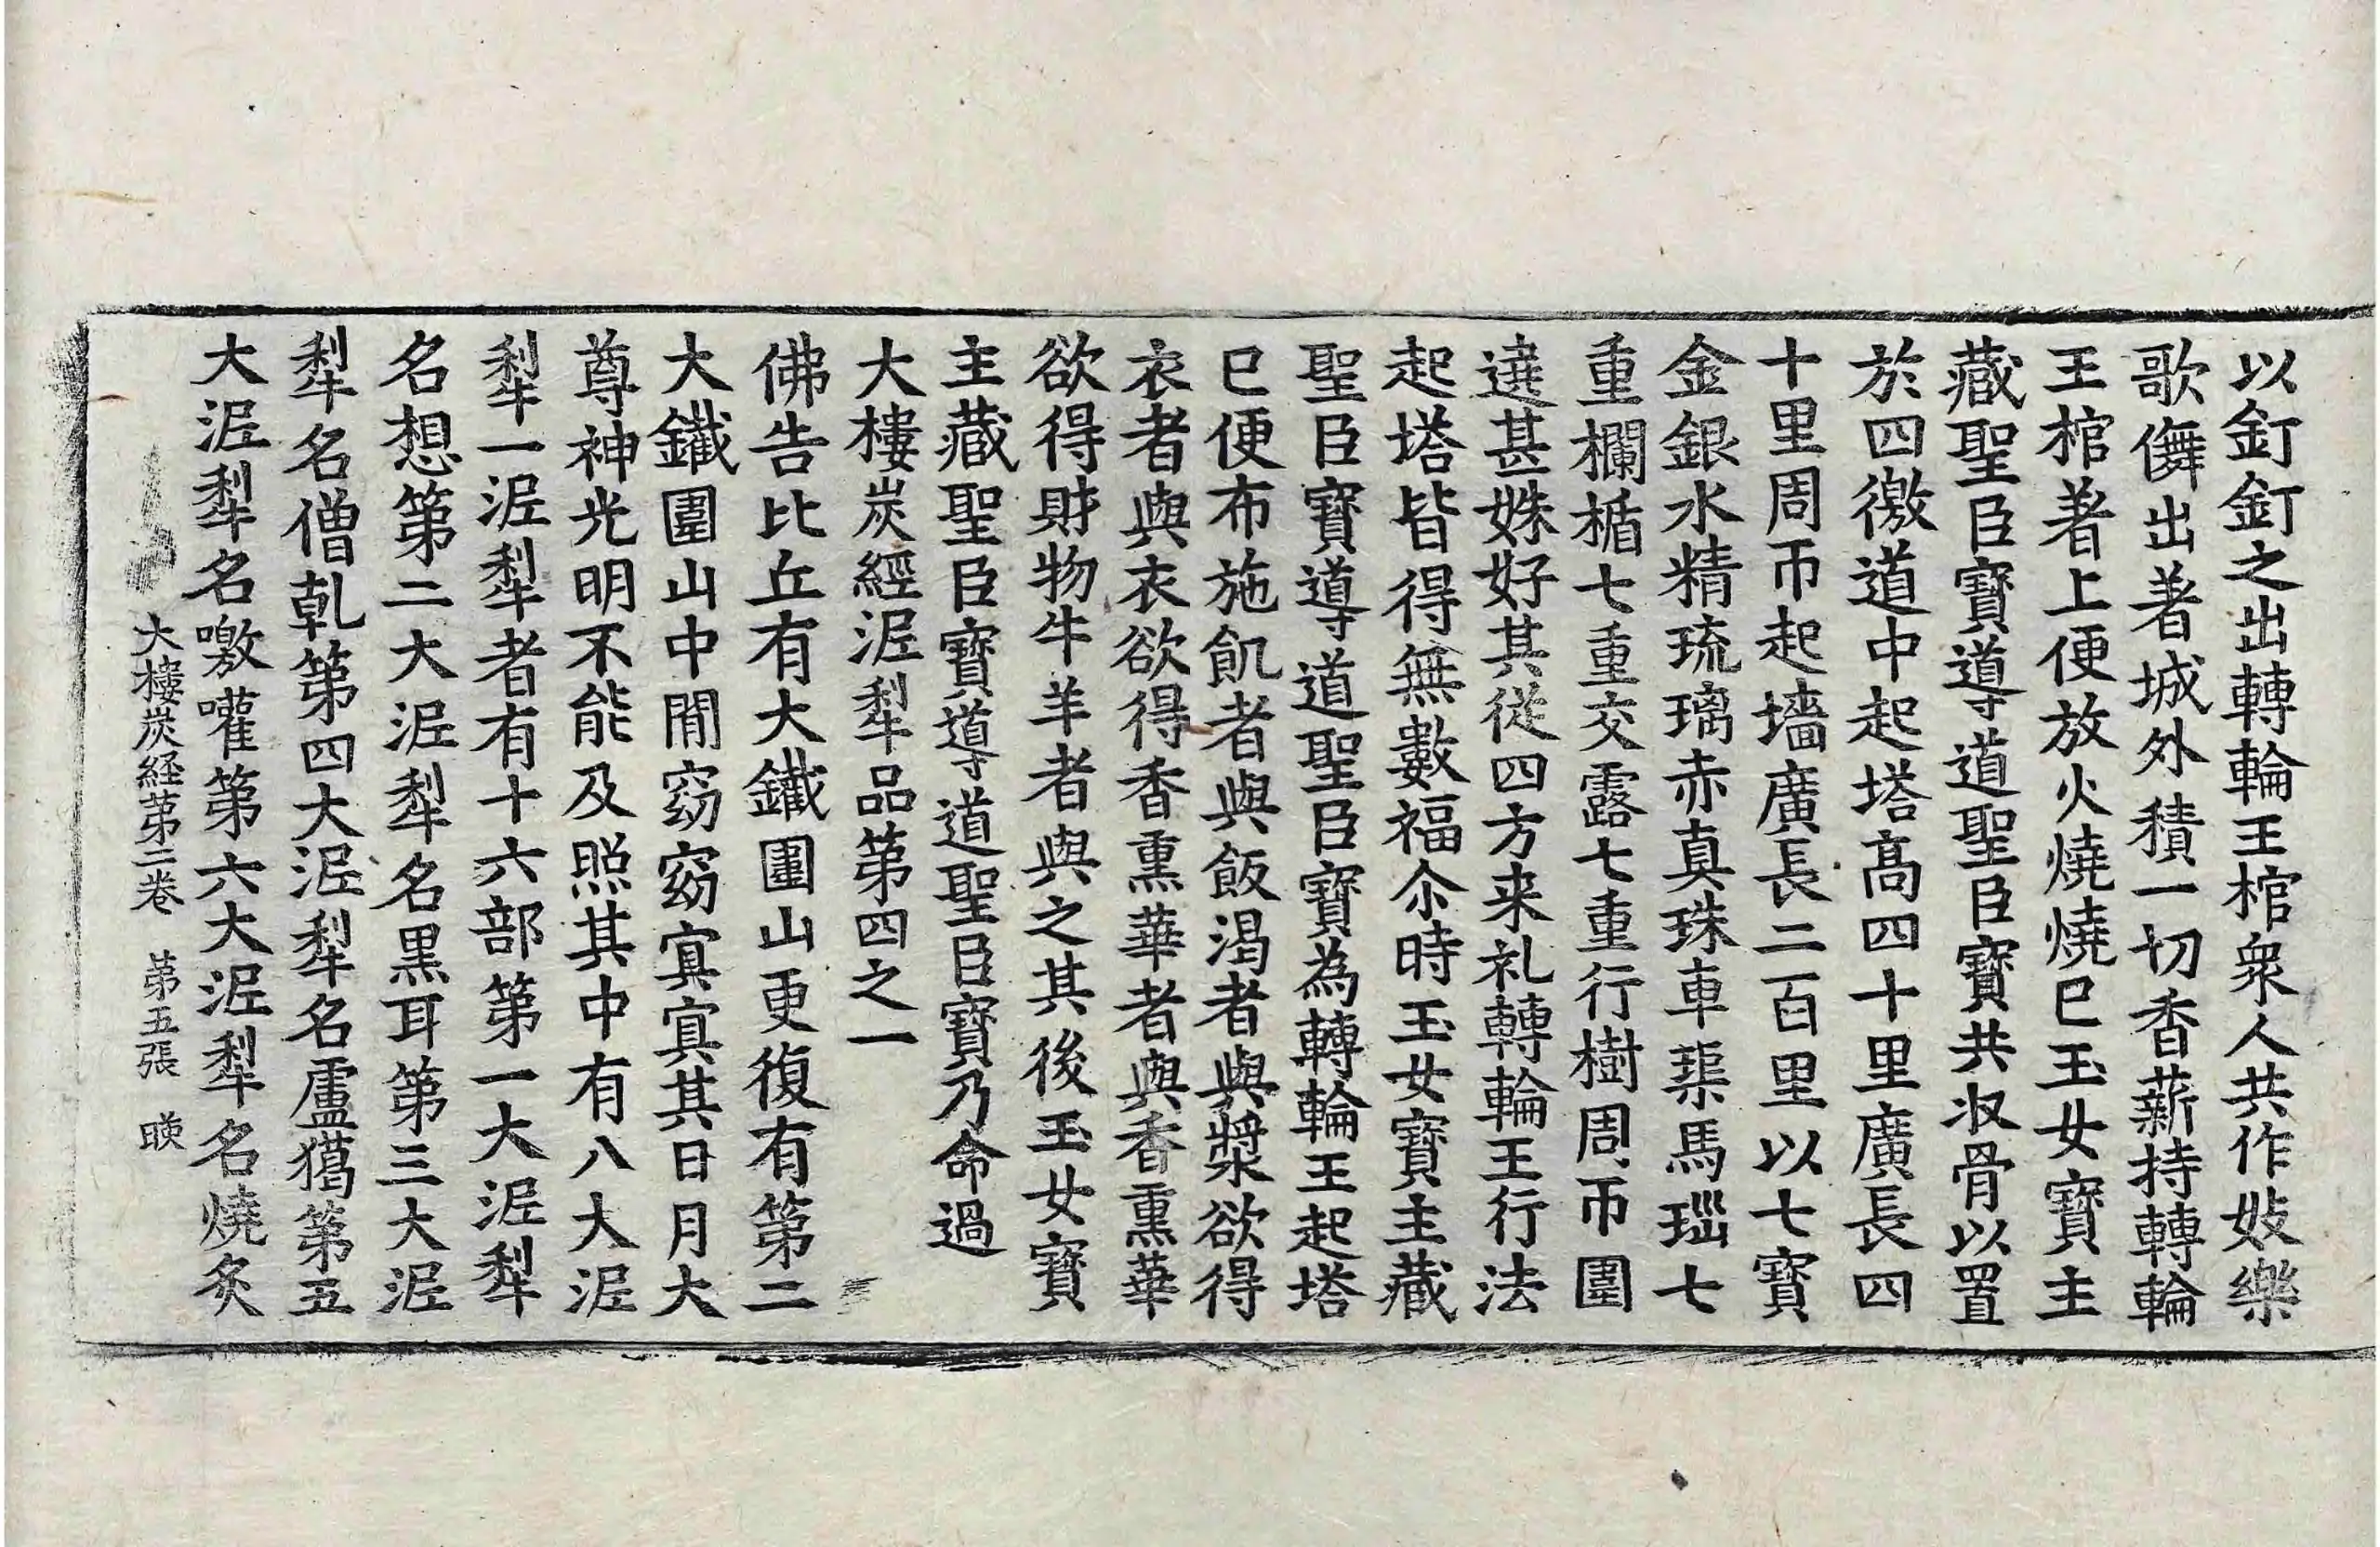 以釘釘之出轉輪王棺衆人共作妓樂
歌儛出著城外積一切香薪持轉輪
王棺著上便放火燒燒已玉女寶主
藏聖臣寶導道聖臣寶共収骨以置
於四徼道中起塔高四十里廣長四
十里周帀起墻廣長二百里以七寶
金銀水精琉璃赤真珠車璖馬瑙七
重欄楯七重交露七重行樹周帀圍
遶甚姝好其從四方来礼轉輪王行法
起塔皆得無數福尒時玉女寶主藏
聖臣寶導道聖臣寶為轉輪王起塔
已便布施飢者與飯渴者與漿欲得
衣者與衣欲得香熏華者與香熏華
欲得財物牛羊者與之其後玉女寶
主藏聖臣寶導道聖臣寶乃命過
大樓炭經泥犁品第四之一
佛告比丘有大鐵圍山更復有第二
大鐵圍山中閒窈窈冥冥其日月大
尊神光明不能及照其中有八大泥
犁一泥犁者有十六部第一大泥犁
名想第二大泥犁名黑耳第三大泥
犁名僧乹第四大泥犁名盧獦第五
大泥犁名噭嚾第六大泥犁名燒炙
大樓炭経第二卷 第五張 映